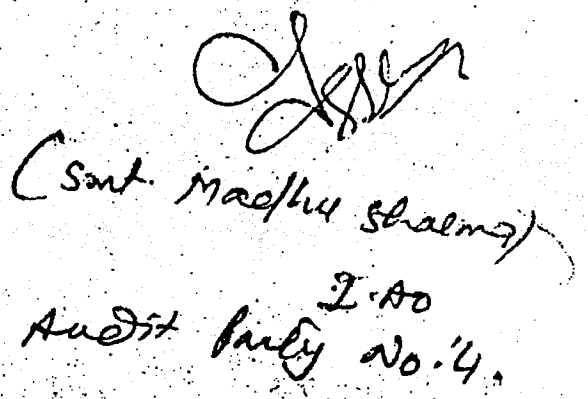 (Smt. Madhu Sharma)
I.AO
Audit Party No. 4.